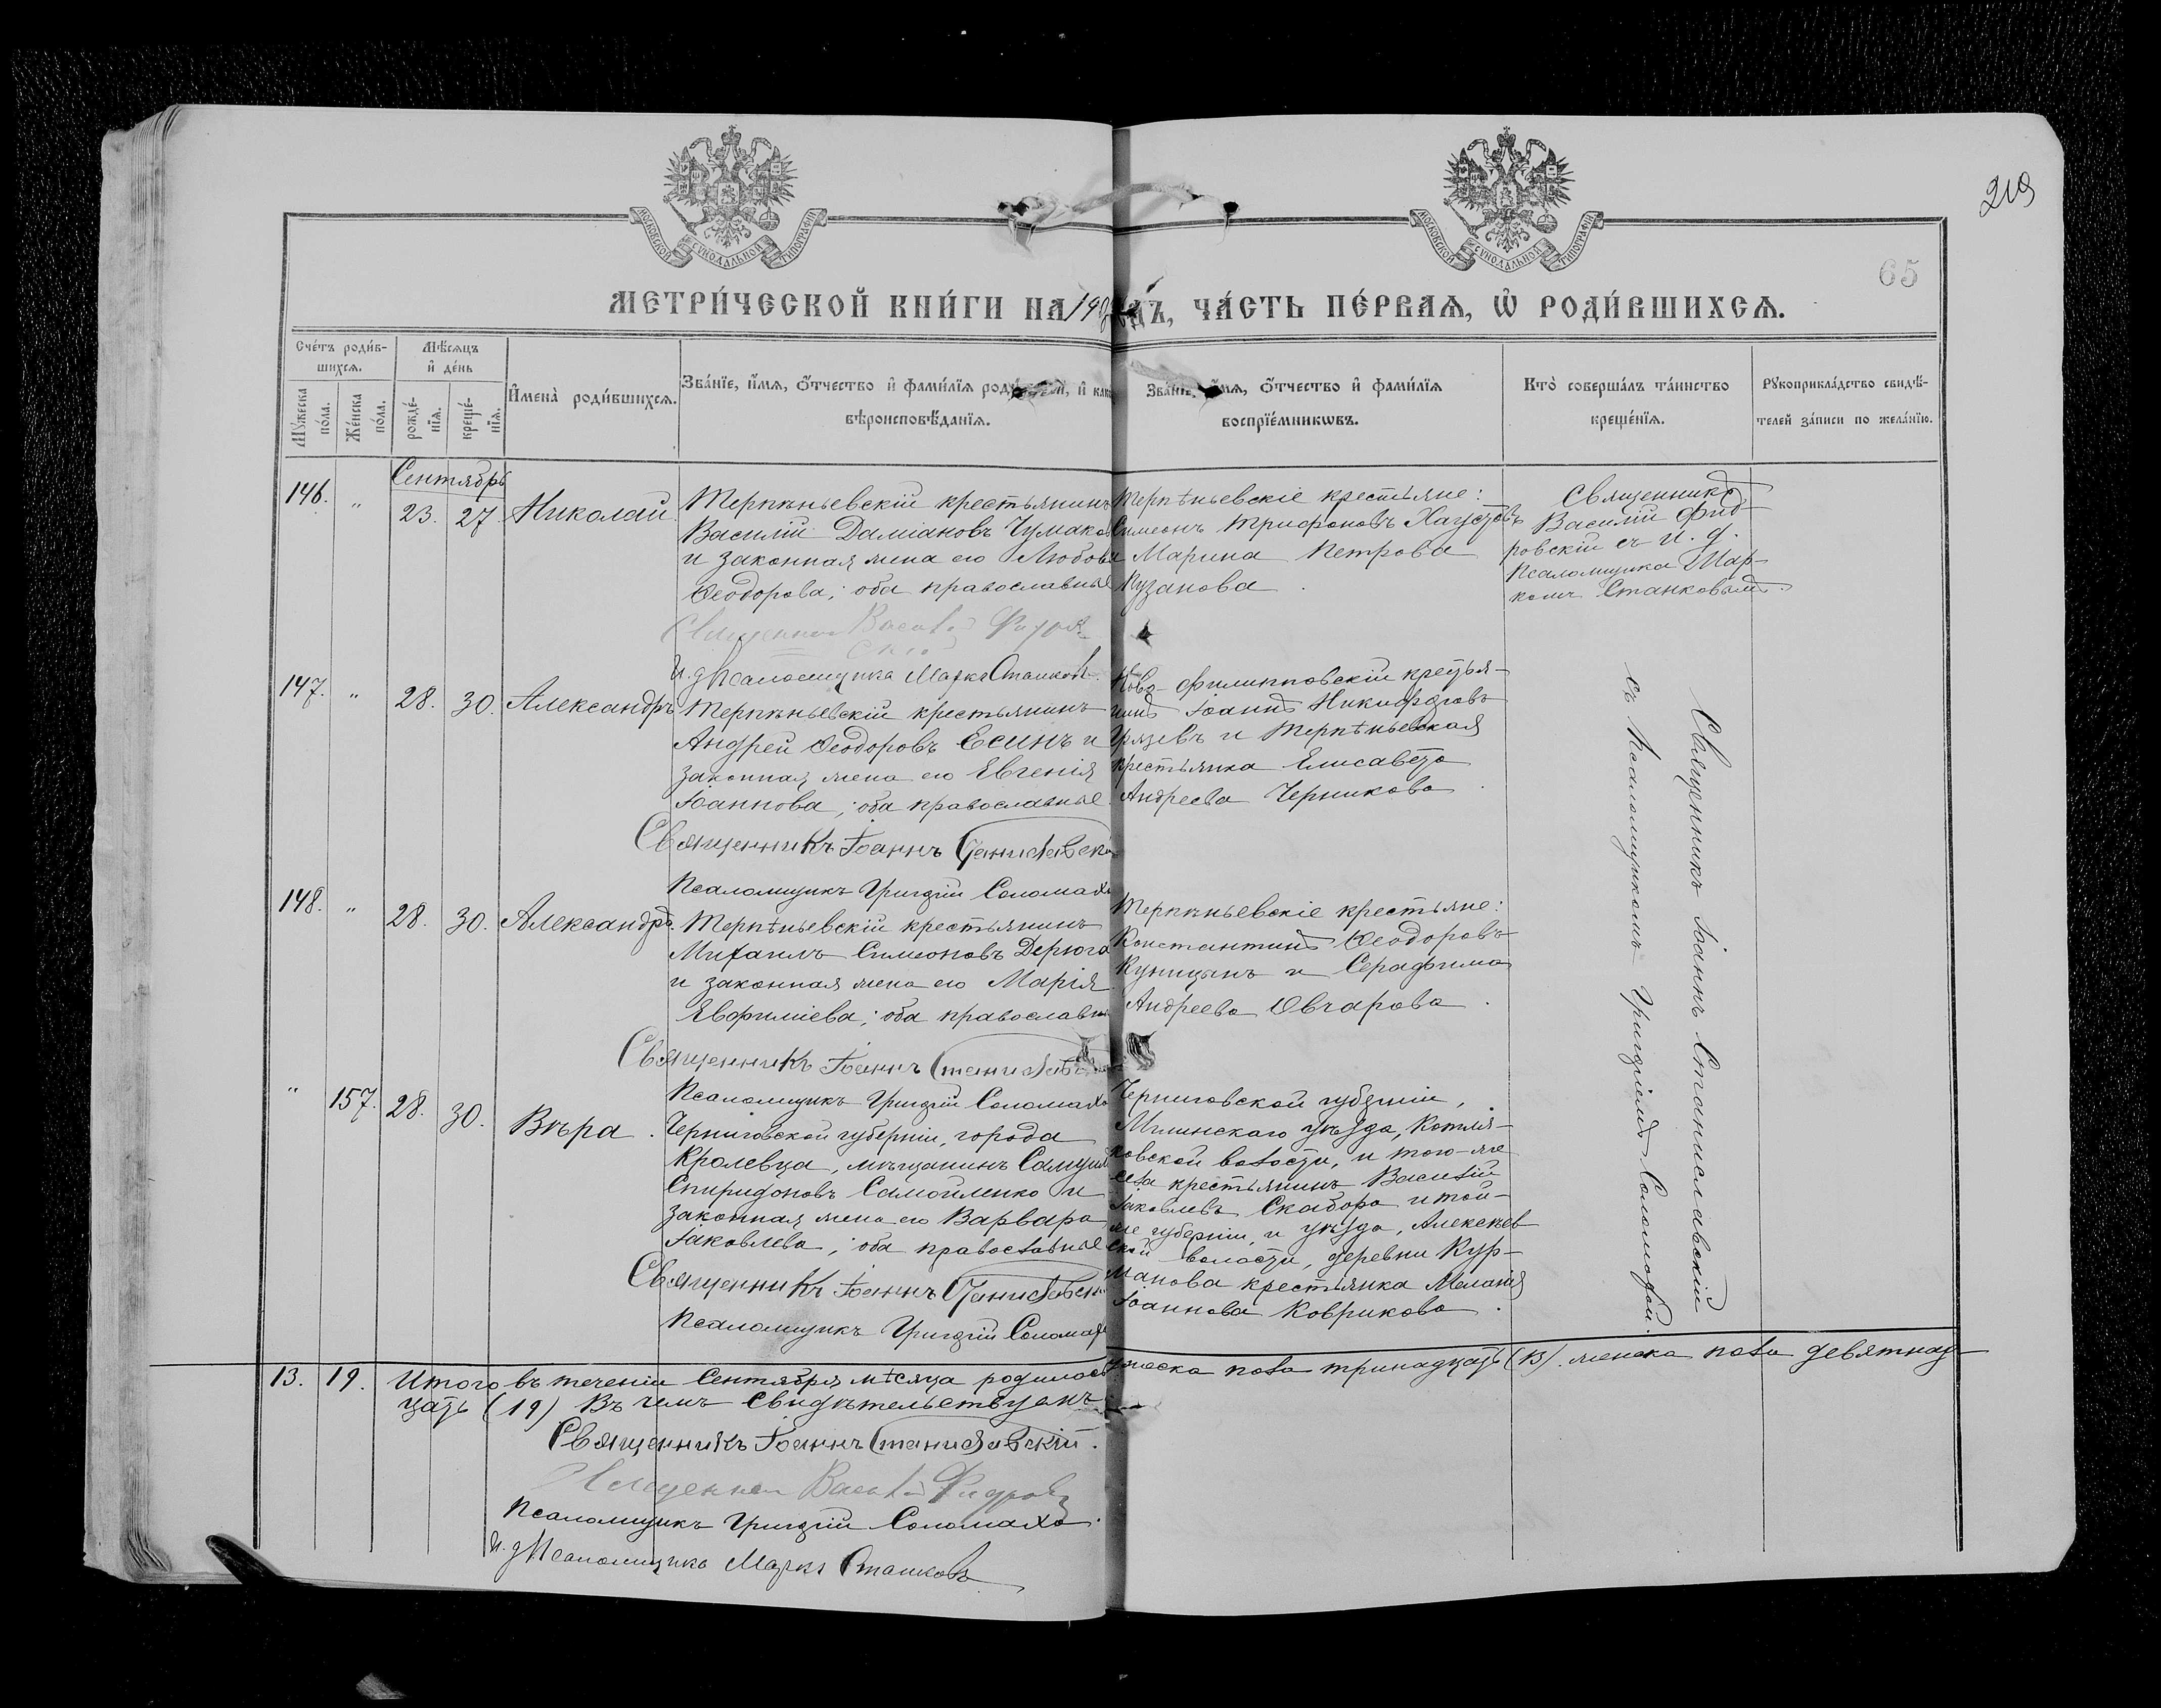 МОСКОВСКОЙ СѴНОДАЛЬНОЙ ТИПОГРАФІИ
МОСКОВСКОЙ СѴНОДАЛЬНОЙ ТИПОГРАФІИ
219
65
МЕТРИ́ЧЕСКОЙ КНИ́ГИ НА 190 ДЪ, ЧА́СТЬ ПЕ́РВАЯ, Ѡ҆ РОДИ́ВШИХСЯ.
Сче́тъ роди́в-
шихся.
Мꙋ́жеска по́ла.
Же́нска по́ла.
Мѣ́сяцъ
и҆ де́нь
рожде́-
нїя.
креще́-
нїя.
И҆мена̀ роди́вшихся.
Зва́нїе, и҆́мя, ѻ҆́тчество и҆ фами́лїя роди́телей, и҆ како
вѣроисповѣ́данїя.
Зва́нїе, и҆́мя, ѻ҆́тчество и҆ фами́лїя
воспрїе́мникѡвъ.
Кто̀ соверша́лъ та́инство
креще́нїя.
Рꙋкоприкла́дство свидѣ́-
телей за́писи по жела́нїю.
Сентябрь
146. " 23. 27 Николай.
Терпѣньевскій крестьянинъ
Василій Даміановъ Чумаков
и законная жена его Любовь
Ѳеодорова; оба православные
Священник Василій Фидров
ский
И. д Псаломщика Маркъ Станковъ.
Терпѣньевскіе крестьяне:
Симеонъ Трифоновъ Хаустовъ
и Марина Петрова
Пузанова.
Священникъ
Василій Фид-
ровскій съ и. д.
Псаломщика Мар-
комъ Станковымъ.
147. " 28. 30. Александръ
Терпѣньевскій крестьянинъ
Андрей Ѳеодоровъ Есинъ и
законная жена его Евгенія
Іоаннова; оба православные.
Священникъ Іоаннъ Станиславскій
Псаломщикъ Григорій Соломаха
Ново-Филипповскій крестья-
нинъ Іоаннъ Никифоровъ
Грязевъ и Терпѣньевская
крестьянка Елисавета
Андреева Черникова.
148. " 28. 30. Александръ.
Терпѣньевскій крестьянинъ
Михаилъ Симеоновъ Дерюга
и законная жена его Марія
Евфиміева; оба православны
Священникъ Іоаннъ Станиславскій
Псаломщикъ Григорій Соломаха
Терпѣньевскіе крестьяне:
Константинъ Ѳеодоровъ
Куницынъ и Серафима
Андреева Овчарова.
" 157. 28. 30. Вѣра.
Черниговской губерніи, города
Кролевца, мѣщанинъ Самуилъ
Спиридоновъ Самойленко и
законная жена его Варвара
Іаковлева; оба православные
Священникъ Іоаннъ Станиславскій
Псаломщикъ Григорій Соломаха
Черниговской губерніи,
Мглинскаго уѣзда, Котля-
ковской волости, и того-же
села крестьянинъ Василій
Іаковлевъ Скабора и той-
же губерніи, и уѣзда, Алексѣев
ской волости, деревни Кур-
манова крестьянка Меланія
Іоаннова Коврикова.
Священникъ Іоаннъ Станиславскій
съ Псаломщикомъ Григоріемъ Соломахой.
13. 19. Итого въ теченіи Сентября мѣсяца родилось мужеска пола тринадцать (13). женска пола девятнад-
цать (19) Въ чемъ свидѣтельствуемъ
Священникъ Іоаннъ Станиславскій.
Священник Василій Фидров
Псаломщикъ Григорій Соломаха.
И. д Псаломщика Маркъ Станковъ